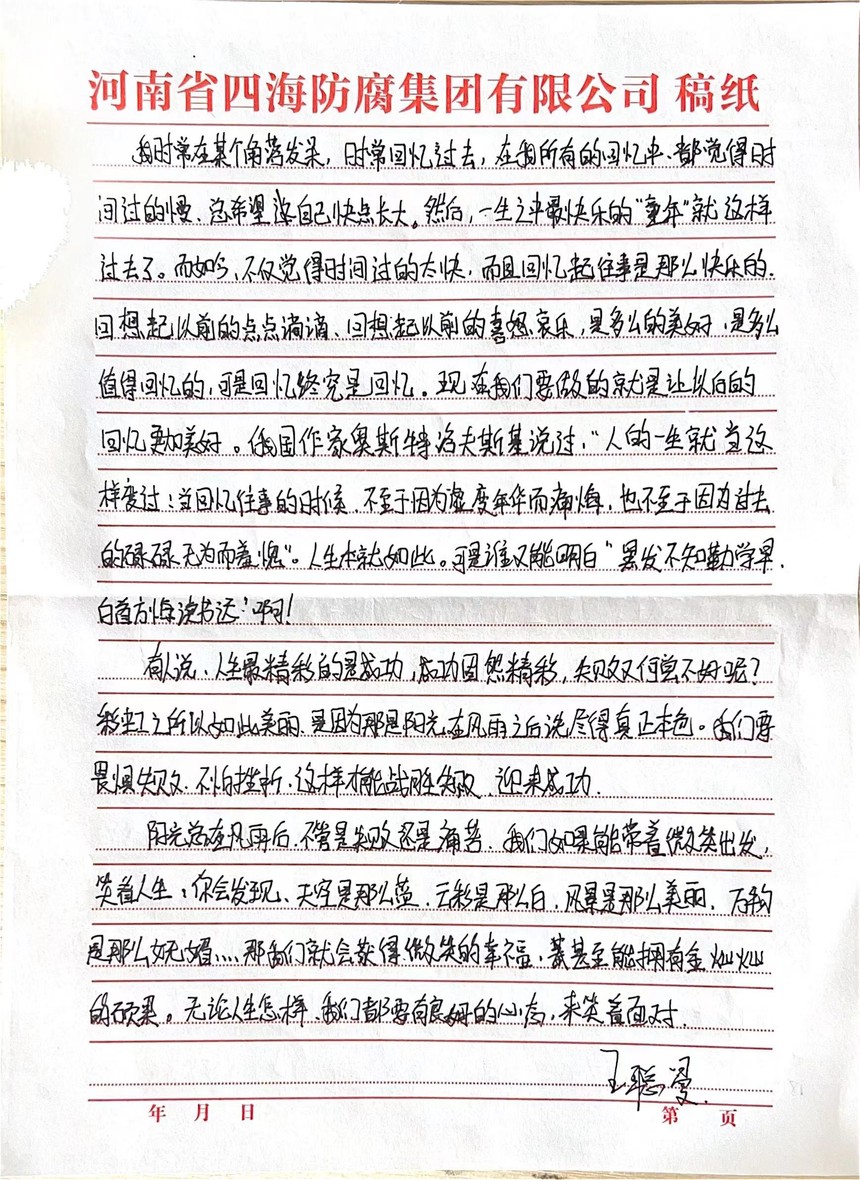 河南省四海防腐集团有限公司 稿纸
我时常在某个角落发呆，日常回忆过去，在我所有的回忆中、都觉得时
间过的慢、总希望自己快点长大。然后，一生之中最快乐的“童年”就这样
过去了。而如今、不仅觉得时间过的太快，而且回忆起往事是那么快乐的.
回想起以前的点点滴滴、回想起以前的喜怒哀乐，是多么的美好，是多么
值得回忆的，可是回忆终究是回忆。现在我们要做的就是让以后的
回忆更加美好。俄国作家奥斯特洛夫斯基说过，“人的一生就当这
样度过：当回忆往事的时候、不至于因为虚度年华而痛悔，也不至于因为过去
的碌碌无为而羞愧”。人生本就如此。可是谁又能明白“黑发不知勤学早.
白首方悔读书迟”啊！
有人说、人生最精彩的是成功，成功固然精彩，失败又何尝不好呢？
彩虹之所以如此美丽、是因为那是阳光在风雨之后洗尽得真正本色。我们要
畏惧失败、不怕挫折、这样才能战胜失败、迎来成功.
阳光总在风雨后、不管是失败还是痛苦、我们如果能带着微笑出发，
笑着人生，你会发现、天空是那么蓝、云彩是那么白、风景是那么美丽、万物
是那么妩媚……那我们就会获得微笑的幸福、甚至能拥有金灿灿
的硕果。无论人生怎样、我们都要有良好的心态，来笑着面对.
王聪曼.
年 月 日
第 页